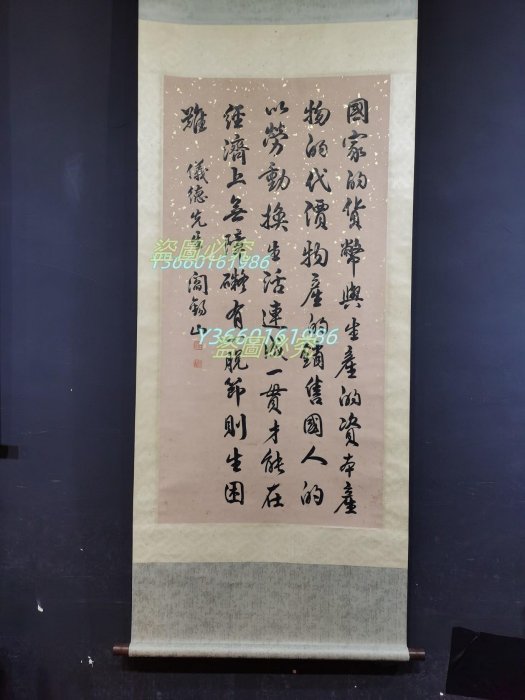 國家的貨幣與生產的資本產
物的代價物產的銷售國人的
以勞動換生活連成一貫才能在
經濟上無障礙有脫節則生困
難 儀德先生 閻錫山
盜圖必究
Y3660161986
Y3660161986
盜圖必究